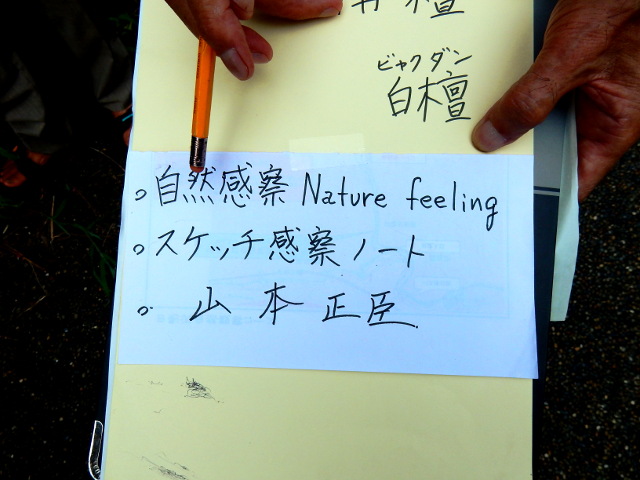 檀
ビャクダン
白檀
。自然感察 Nature feeling
。スケッチ感察ノート
。山本正臣